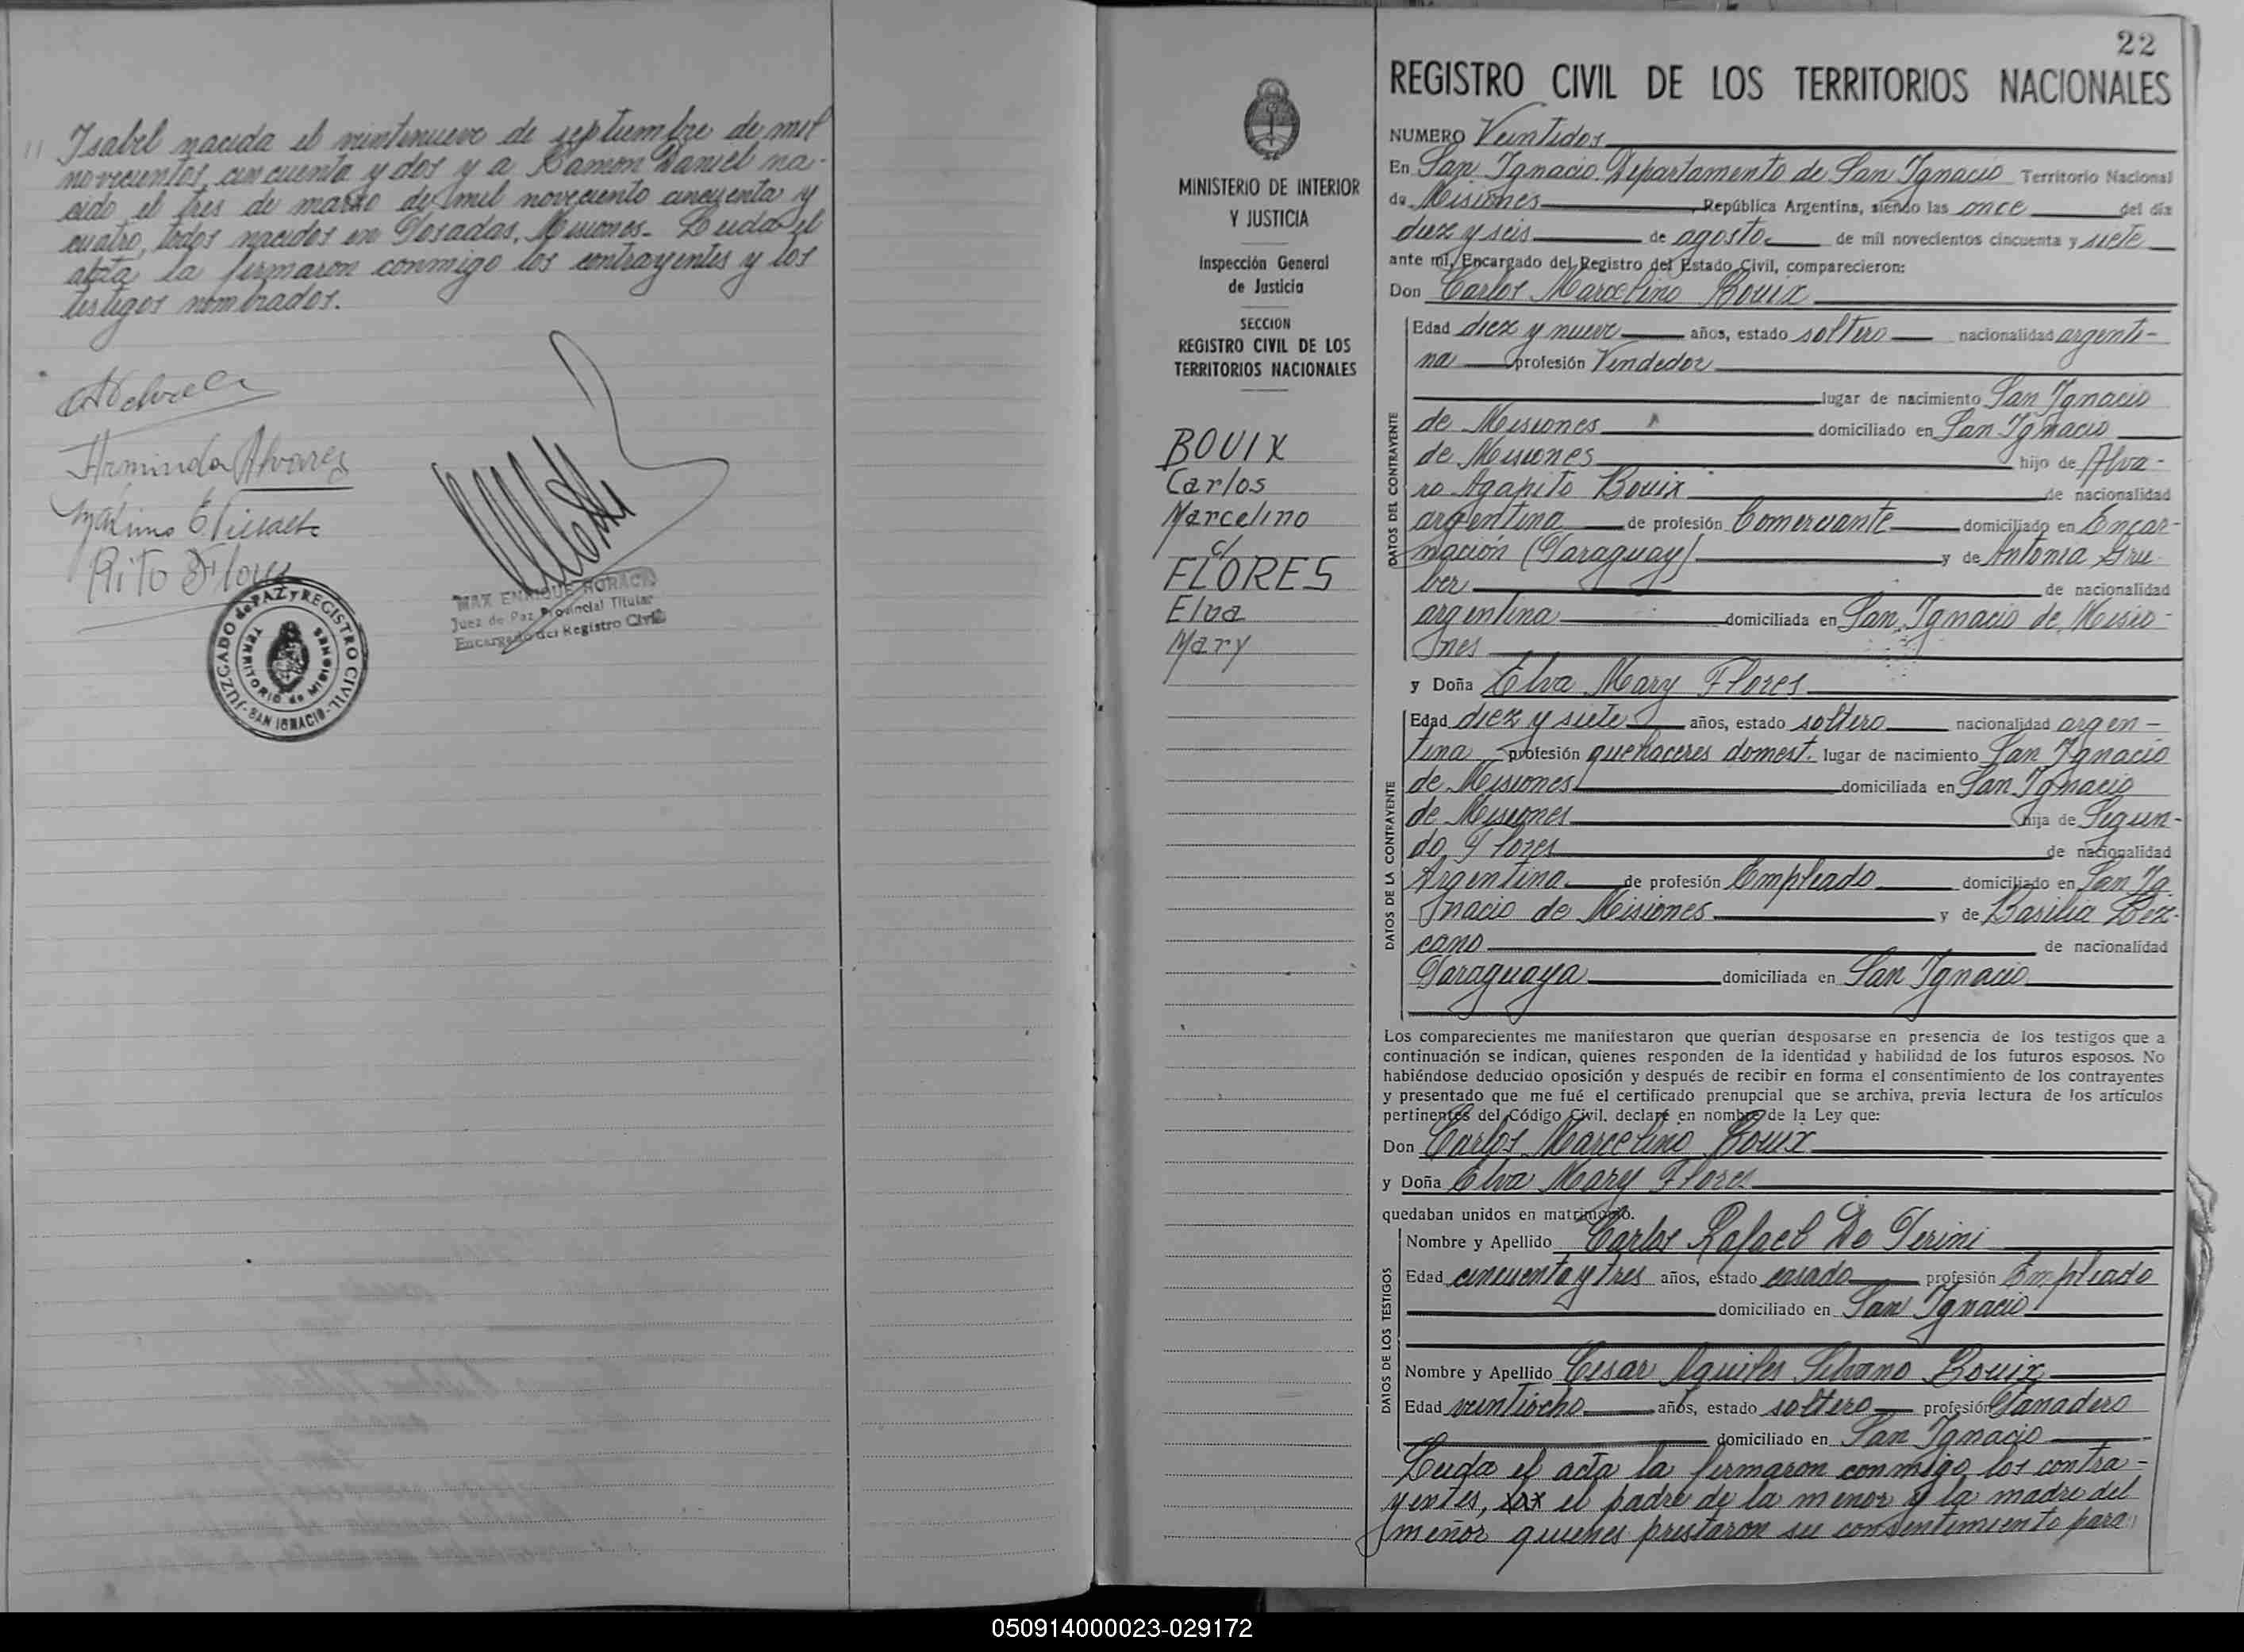 " Isabel nacida el veintinueve de septiembre de mil
novecientos cincuenta y dos y a Ramon Daniel na-
cido el tres de marzo de mil noveciento cincuenta y
cuatro, todos nacidos en Posadas, Misiones. Leida el
acta la firmaron conmigo los contrayentes y los
testigos nombrados.
Arminda Alvarez
Rito Flores
MAX ENRIQUE HORACIO
Juez de Paz Provincial Titular
Encargado del Registro Civil
JUZGADO de PAZ y REGISTRO CIVIL
SAN IGNACIO
TERRITORIO de MISIONES
MINISTERIO DE INTERIOR
Y JUSTICIA
Inspección General
de Justicia
SECCION
REGISTRO CIVIL DE LOS
TERRITORIOS NACIONALES
BOUIX
Carlos
Marcelino
c/
FLORES
Elva
Mary
22
REGISTRO CIVIL DE LOS TERRITORIOS NACIONALES
NUMERO Veintidos
En San Ignacio, Departamento de San Ignacio Territorio Nacional
de Misiones, República Argentina, siendo las once del día
diez y seis de agosto de mil novecientos cincuenta y siete
ante mí, Encargado del Registro del Estado Civil, comparecieron:
Don Carlos Marcelino Bouix
DATOS DEL CONTRAYENTE
Edad diez y nueve años, estado soltero nacionalidad argenti-
na profesión Vendedor
lugar de nacimiento San Ignacio
de Misiones domiciliado en San Ignacio
de Misiones hijo de Alva-
ro Agapito Bouix de nacionalidad
argentina de profesión Comerciante domiciliado en Encar-
nación (Paraguay) y de Antonia Gru-
ber de nacionalidad
argentina domiciliada en San Ignacio de Misio-
nes
y Doña Elva Mary Flores
DATOS DE LA CONTRAYENTE
Edad diez y siete años, estado soltera nacionalidad argen-
tina profesión quehaceres domest. lugar de nacimiento San Ignacio
de Misiones domiciliada en San Ignacio
de Misiones hija de Segun-
do Flores de nacionalidad
Argentina de profesión Empleado domiciliado en San Ig
nacio de Misiones y de Basilia Lez-
cano de nacionalidad
Paraguaya domiciliada en San Ignacio
Los comparecientes me manifestaron que querían desposarse en presencia de los testigos que a
continuación se indican, quienes responden de la identidad y habilidad de los futuros esposos. No
habiéndose deducido oposición y después de recibir en forma el consentimiento de los contrayentes
y presentado que me fué el certificado prenupcial que se archiva, previa lectura de los artículos
pertinentes del Código Civil, declaré en nombre de la Ley que:
Don Carlos Marcelino Bouix
y Doña Elva Mary Flores
quedaban unidos en matrimonio.
DATOS DE LOS TESTIGOS
Nombre y Apellido Carlos Rafael De
Edad cincuenta y tres años, estado casado profesión Empleado
domiciliado en San Ignacio
Nombre y Apellido Cesar Aquiles Silvano Bouix
Edad veintiocho años, estado soltero profesión Ganadero
domiciliado en San Ignacio
Leida el acta la firmaron conmigo los contra-
yentes, el padre de la menor y la madre del
menor quienes prestaron su consentimiento para
050914000023-029172